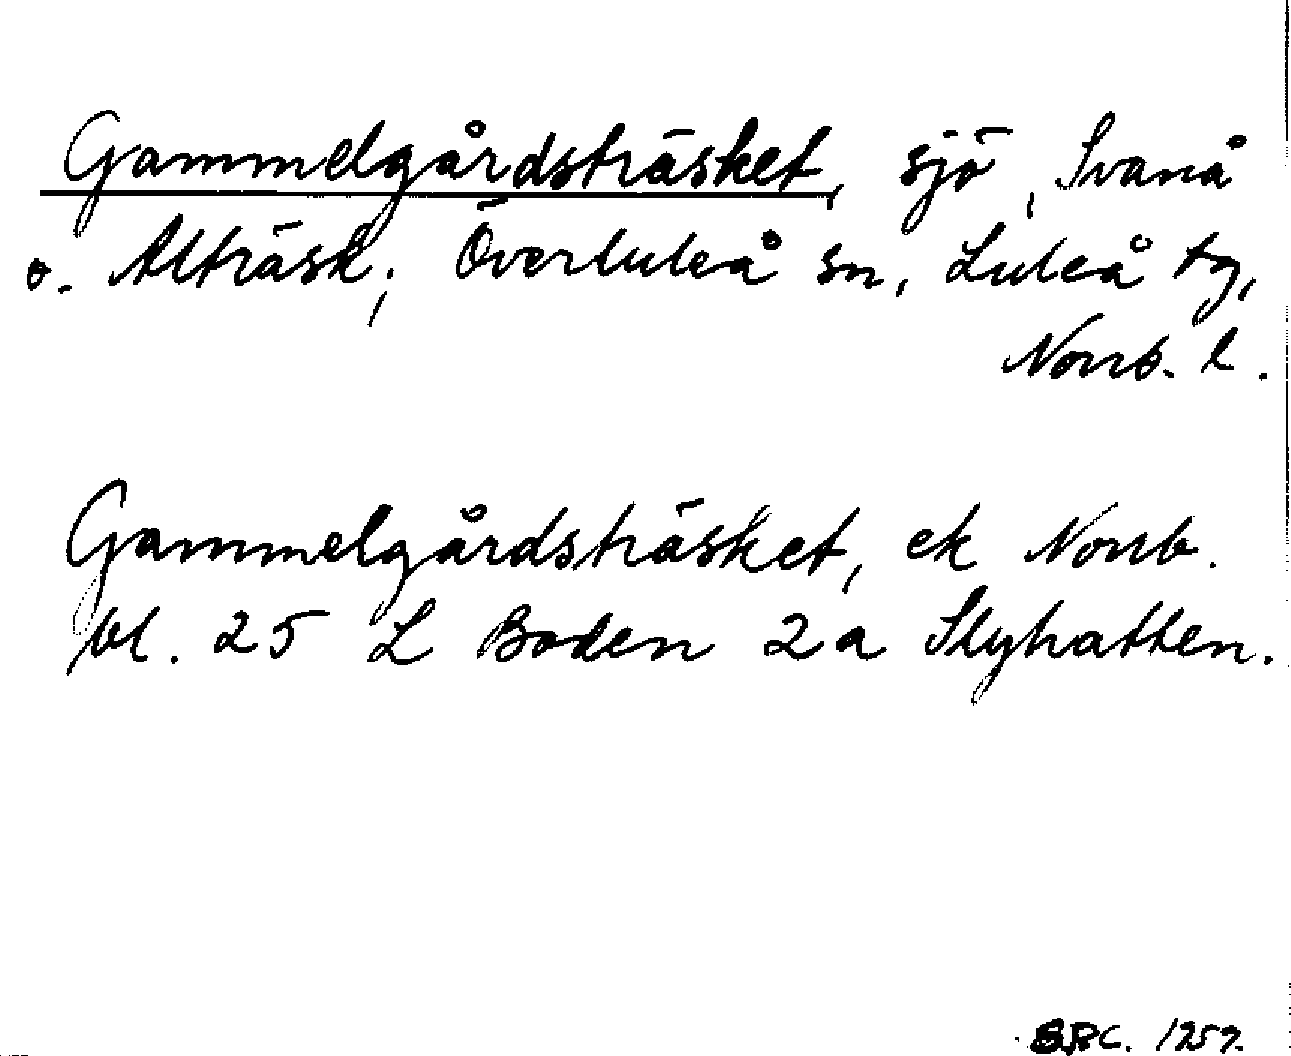 Gammelgårdsträsket, sjö, Svanå
o. Alträsk, Överluleå sn, Luleå tg,
Norrb. l.
Gammelgårdsträsket, ek Norrb.
bl. 25 L Boden 2a Slyhatten.
1959.